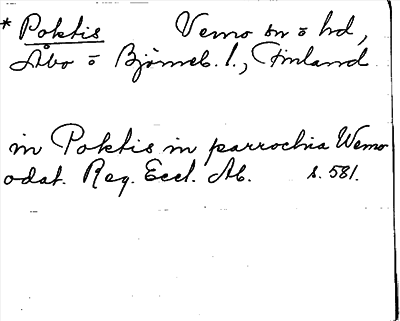 * Poktis Vemo sn o hd,
Åbo o Björneb. l., Finland
in Poktis in parrochia Wemo
odat. Reg. Eccl. Ab. s. 581.